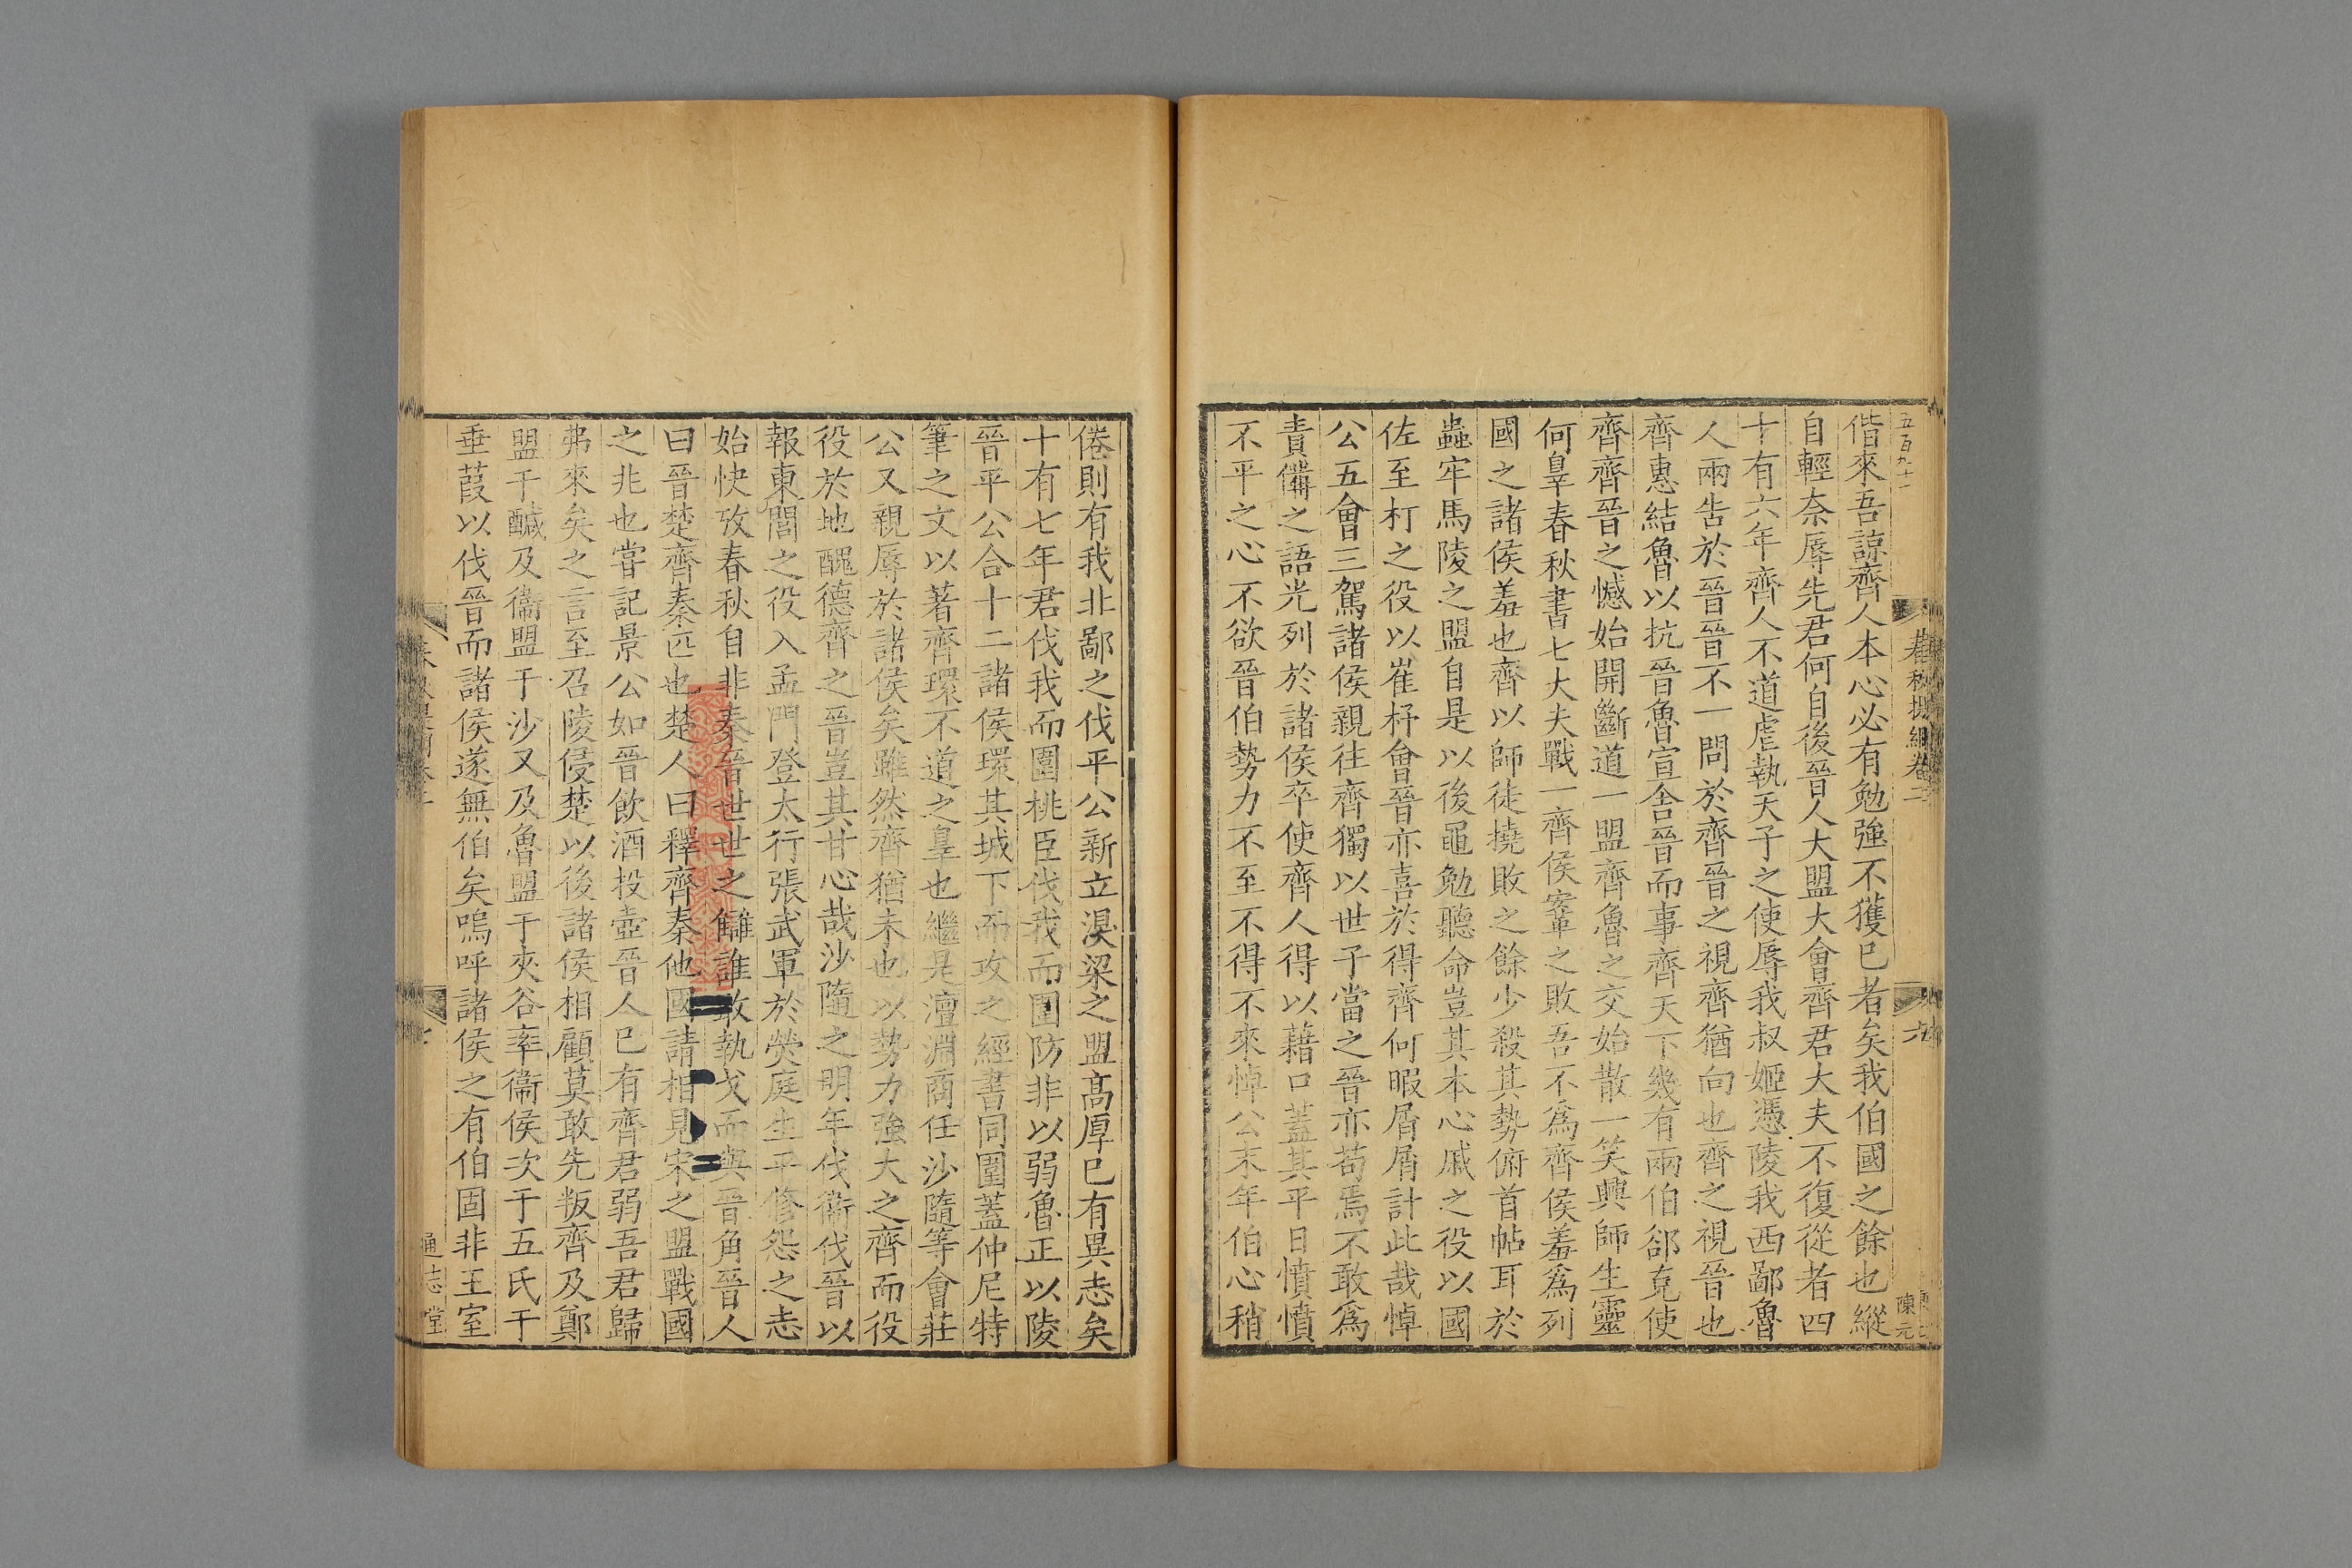 五百九十
偕來吾諒齊人本心必有勉強不獲已者矣我伯國之餘也縱
自輕奈辱先君何自後晉人大盟大會齊君大夫不復從者四
十有六年齊人不道虐執天子之使辱我叔姬憑陵我西鄙魯
人兩告於晉晉不一問於齊晉之視齊猶向也齊之視晉也
齊惠結魯以抗晉魯宣舍晉而事齊天下幾有兩伯郤克使
齊齊晉之憾始開斷道一盟齊魯之交始散一笑興師生靈
何辠春秋書七大夫戰一齊侯鞌之敗吾不爲齊侯羞爲列
國之諸侯羞也齊以師徒撓敗之餘少殺其勢俯首帖耳於
蟲牢馬陵之盟自是以後黽勉聽命豈其本心戚之役以國
佐至朾之役以崔杼會晉亦喜於得齊何暇屑屑計此哉悼
公五會三駕諸侯親往齊獨以世子當之晉亦苟焉不敢爲
責備之語光列於諸侯卒使齊人得以藉口蓋其平日憤憤
不平之心不欲晉伯勢力不至不得不來悼公末年伯心稍
倦則有我非鄙之伐平公新立湨梁之盟高厚已有異志矣
十有七年君伐我而圍桃臣伐我而圍防非以弱魯正以陵
晉平公合十二諸侯環其城下而攻之經書同圍蓋仲尼特
筆之文以著齊環不道之辠也繼是澶淵商任沙隨等會莊
公又親辱於諸侯矣雖然齊猶未也以勢力強大之齊而役
役於地醜德齊之晉豈其甘心哉沙隨之明年伐衞伐晉以
報東閭之役入孟門登太行張武軍於熒庭生平修怨之志
始快攷春秋自非秦晉世世之讎誰敢執戈而與晉角晉人
曰晉楚齊秦匹也楚人曰釋齊秦他國請相見宋之盟戰國
之兆也嘗記景公如晉飲酒投壺晉人已有齊君弱吾君歸
弗來矣之言至召陵侵楚以後諸侯相顧莫敢先叛齊及鄭
盟于鹹及衞盟于沙又及魯盟于夾谷率衞侯次于五氏于
垂葭以伐晉而諸侯遂無伯矣嗚呼諸侯之有伯固非王室
通志堂